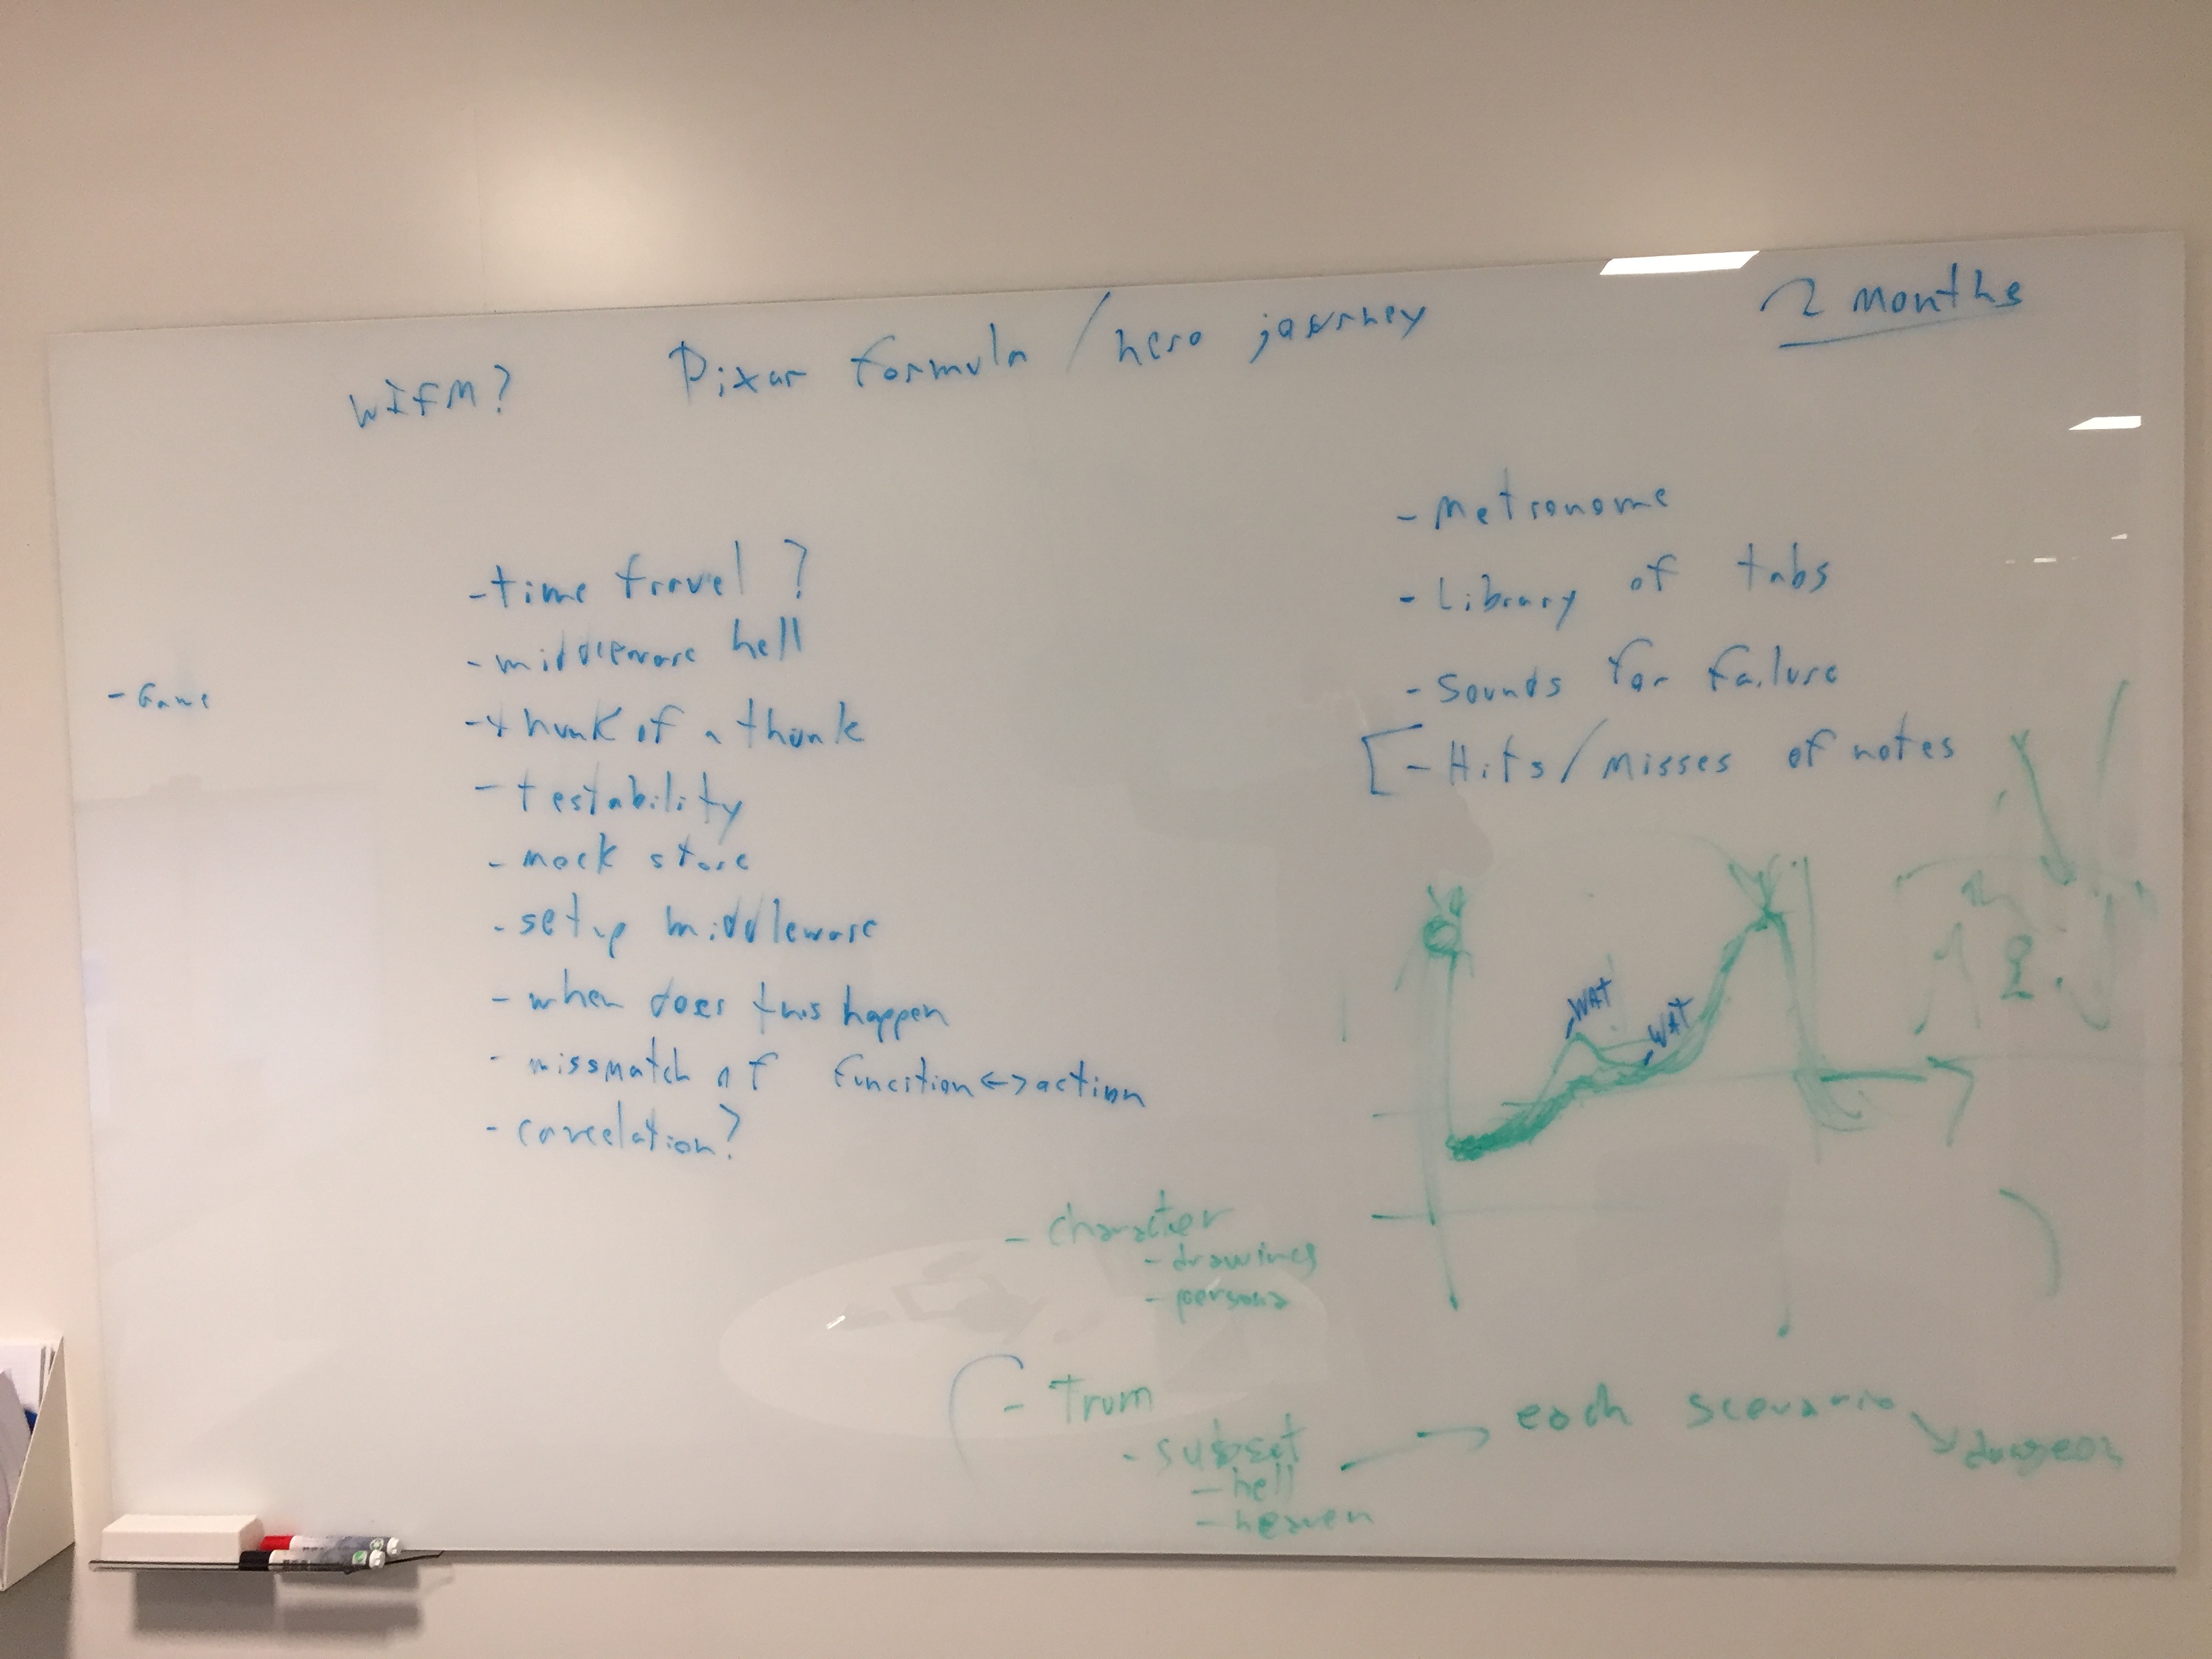 WIFM?
Pixar formula / hero journey
2 months
- Game
- time travel?
- middleware hell
- thunk of a thunk
- testability
- mock store
- setup middleware
- when does this happen
- missmatch of function <-> action
- Metronome
- Library of tabs
- Sounds for failure
- Hits/misses of notes
WAT
WAT
- character
- drawings
- persona
- Trum
- subset
- hell
- heaven
each scenario